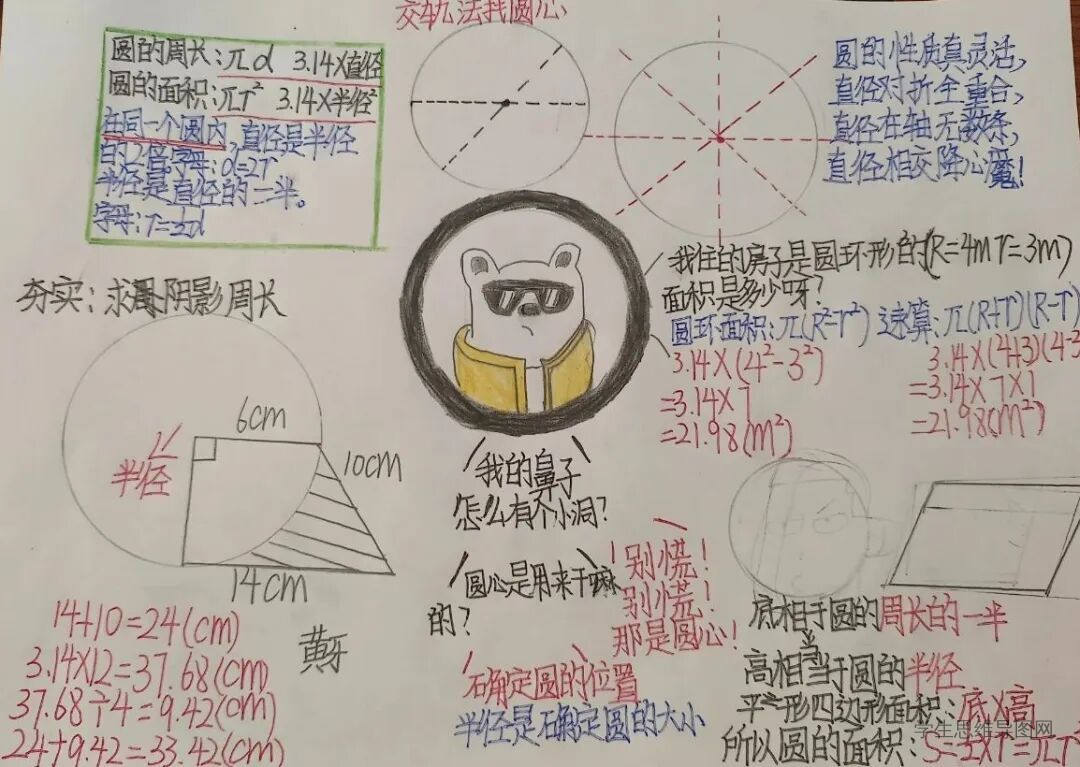 交轨法找圆心
圆的周长:πd 3.14×直径
圆的面积:πr² 3.14×半径²
在同一个圆内,直径是半径
的2倍字母:d=2r
半径是直径的一半。
字母:r=½d
圆的性质真灵活,
直径对折全重合,
直径在轴无数条,
直径相交降心魔!
我住的房子是圆环形的(R=4m r=3m)
面积是多少呀?
圆环面积:π(R²-r²) 速算:π(R+r)(R-r)
3.14×(4²-3²)
=3.14×7
=21.98(m²)
3.14×(4+3)(4-3
=3.14×7×1
=21.98(m²)
夯实:求阴影周长
6cm
半径
10cm
14cm
14+10=24(cm)
3.14×12=37.68(cm)
37.68÷4=9.42(cm)
24+9.42=33.42(cm)
我的鼻子
怎么有个小洞?
圆心是用来干嘛
的?
别慌!
别慌!
那是圆心!
确定圆的位置
半径是确定圆的大小
底相当于圆的周长的一半
高相当于圆的半径
平行形四边形面积:底×高
所以圆的面积:S=
学生思维导图网